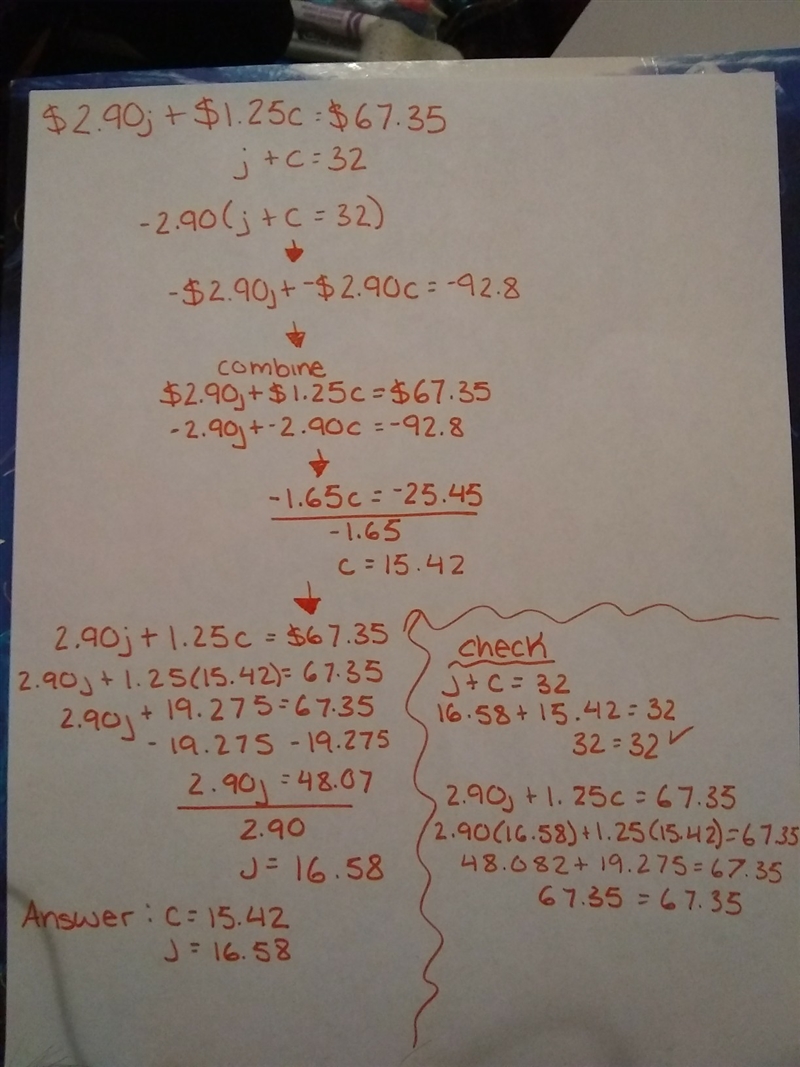 $2.90j + $1.25c = $67.35
j + c = 32
-2.90(j + c = 32)
-$2.90j + -$2.90c = -92.8
combine
$2.90j + $1.25c = $67.35
-2.90j + -2.90c = -92.8
-1.65c = -25.45
-1.65
c = 15.42
2.90j + 1.25c = $67.35
2.90j + 1.25(15.42) = 67.35
2.90j + 19.275 = 67.35
- 19.275 - 19.275
2.90j = 48.07
2.90
J = 16.58
Answer: c = 15.42
J = 16.58
check
j + c = 32
16.58 + 15.42 = 32
32 = 32 ✓
2.90j + 1.25c = 67.35
2.90(16.58) + 1.25(15.42) = 67.35
48.082 + 19.275 = 67.35
67.35 = 67.35